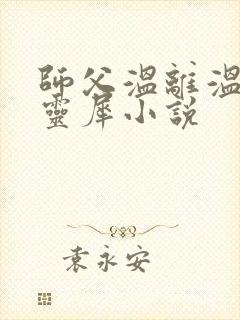 師父溫離溫
靈犀小說
袁永安